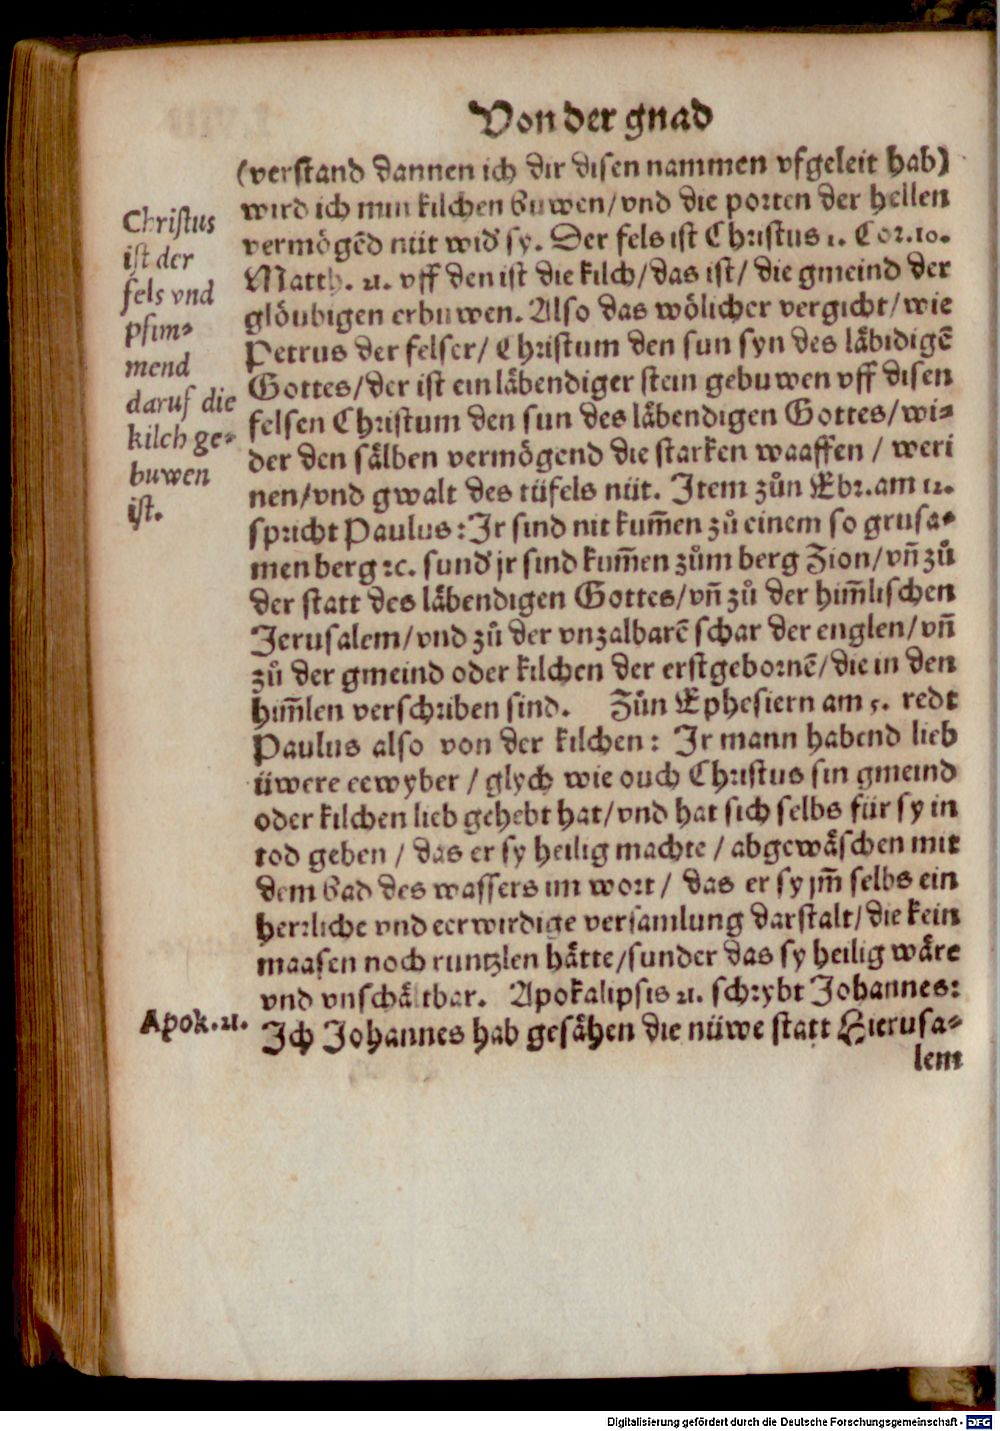 Von der gnad
(verstand dannen ich dir disen nammen vfgeleit hab)
wird ich min kilchen buwen/vnd die porten der hellen
vermögēd nüt wid' sy. Der fels ist Christus 1. Cor.10.
Matth. 21. vff den ist die kilch/das ist/ die gmeind der
glöubigen erbuwen. Also das wölicher vergicht/wie
Petrus der felser/ Christum den sun syn des läbidigē
Gottes/der ist ein läbendiger stein gebuwen vff disen
felsen Christum den sun des läbendigen Gottes/wi⸗
der den sälben vermögend die starken waaffen / weri
nen/vnd gwalt des tüfels nüt. Item zůn Ebr.am 12.
spricht Paulus: Ir sind nit kum̄en zů einem so grusa⸗
men berg ꝛc. sund' jr sind kum̄en zům berg Zion/vn̄ zů
der statt des läbendigen Gottes/vn̄ zů der him̄lischen
Jerusalem/vnd zů der vnzalbarē schar der englen/vn̄
zů der gmeind oder kilchen der erstgebornē/die in den
him̄len verschriben sind. Zůn Ephesiern am 5. redt
Paulus also von der kilchen: Ir mann habend lieb
üwere eewyber / glych wie ouch Christus sin gmeind
oder kilchen lieb gehebt hat/vnd hat sich selbs für sy in
tod geben / das er sy heilig machte / abgewäschen mit
dem bad des wassers im wort/ das er sy jm̄ selbs ein
herrliche vnd eerwirdige versamlung darstalt/die kein
maasen noch runtzlen hätte/sunder das sy heilig wäre
vnd vnschältbar. Apokalipsis 21. schrybt Johannes:
Ich Johannes hab gesähen die nüwe statt Hierusa⸗
lem
Christus
ist der
fels vnd
psim⸗
mend
daruf die
kilch ge⸗
buwen
ist.
Apok.21.
Digitalisierung gefördert durch die Deutsche Forschungsgemeinschaft - DFG